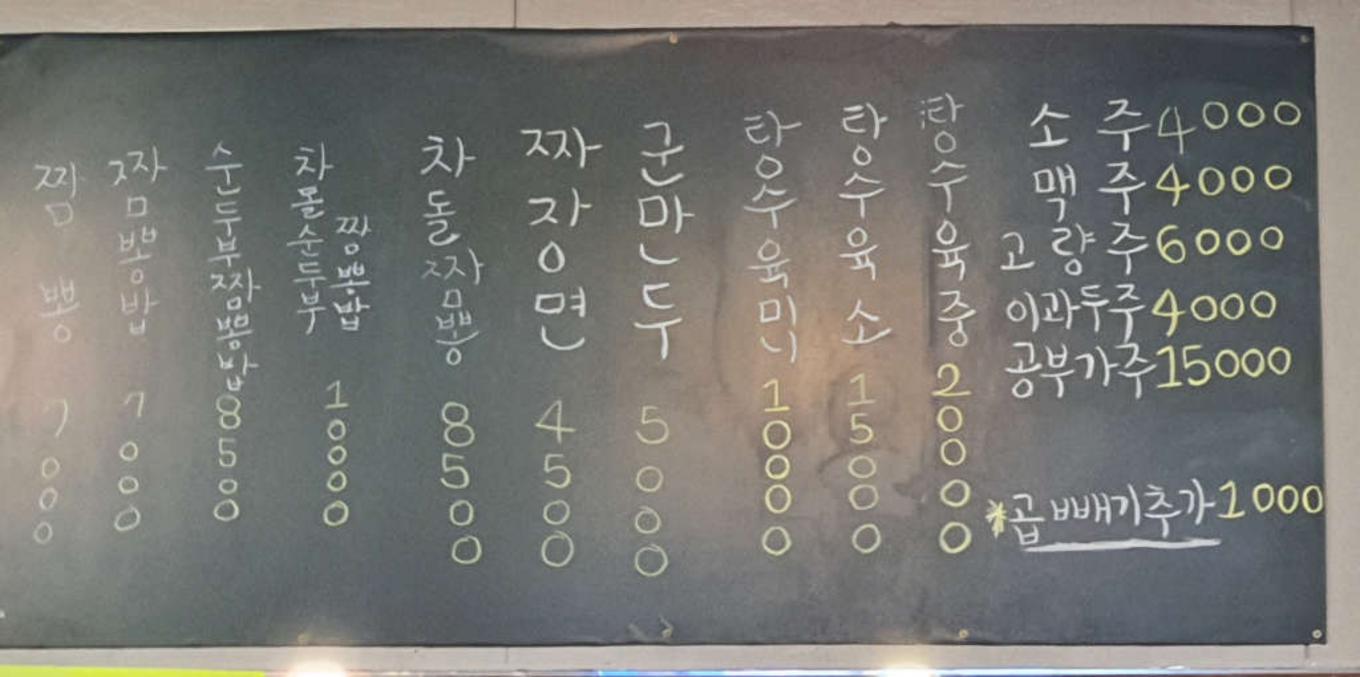 짬뽕 7000
짬뽕밥 7000
순두부짬뽕밥 8500
차돌순두부 짬뽕밥 10000
차돌짬뽕 8500
짜장면 4500
군만두 5000
탕수육미니 10000
탕수육소 15000
탕수육중 20000
소주 4000
맥주 4000
고량주 6000
이과두주 4000
공부가주 15000
*곱빼기추가 1000